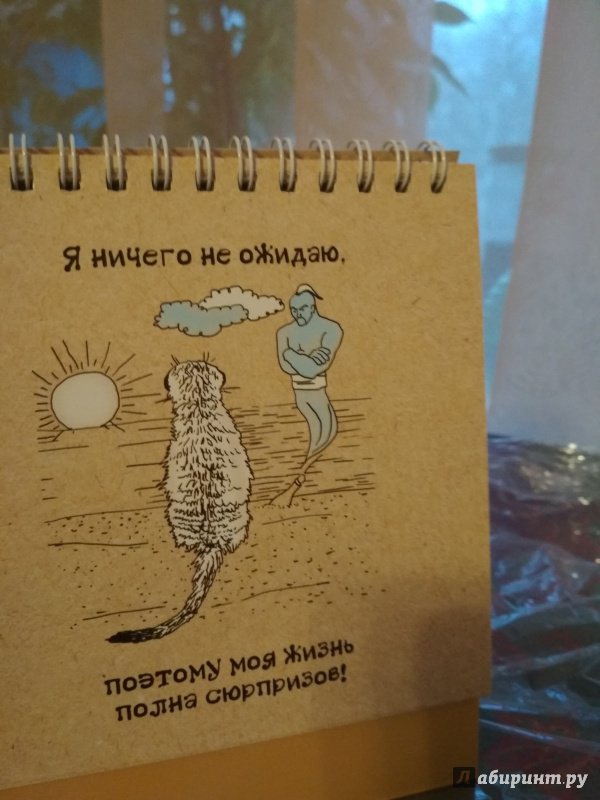 Я ничего не ожидаю,
поэтому моя жизнь
полна сюрпризов!
Лабиринт.ру